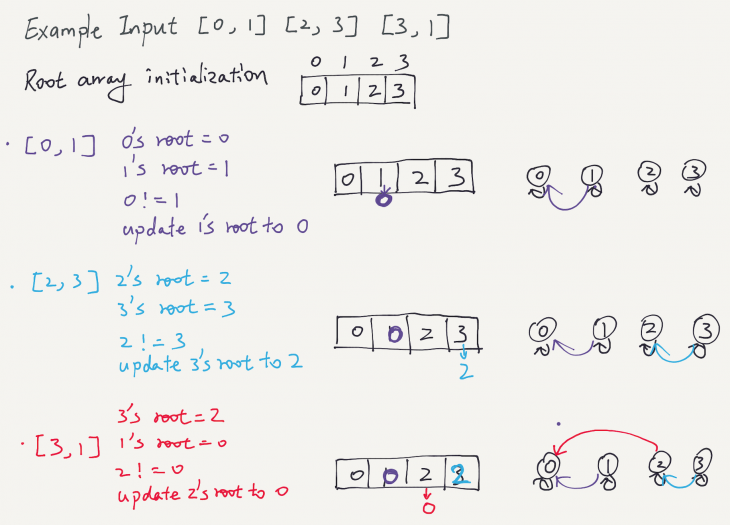 Example Input [0,1] [2,3] [3,1]
0 1 2 3
Root array initialization 0 1 2 3
· [0,1] 0's root = 0
1's root = 1
0 != 1
update 1's root to 0
0 1 2 3
0
0 1 2 3
· [2,3] 2's root = 2
3's root = 3
2 != 3
update 3's root to 2
0 0 2 3
2
0 1 2 3
3's root = 2
· [3,1] 1's root = 0
2 != 0
update 2's root to 0
0 0 2 2
0
0 1 2 3